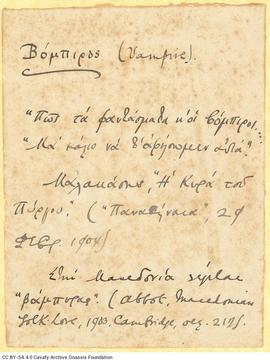 Βόμπιρος (Vampire).
"Πως τα φαντάσματα κ' οι βόμπιροι...
"Μα κάλιο να τ' αφήσωμεν αυτά".
Μαλακάσης, "Η Κυρά του
Πύργου". ("Παναθήναια", 29
Φεβρ. 1904)
Στη Μακεδονία λέγεται
"βόμπυρας". (Abbot, Macedonian
Folk-lore, 1903, Cambridge, σελ. 217).
CC BY-SA 4.0 Cavafy Archive Onassis Foundation